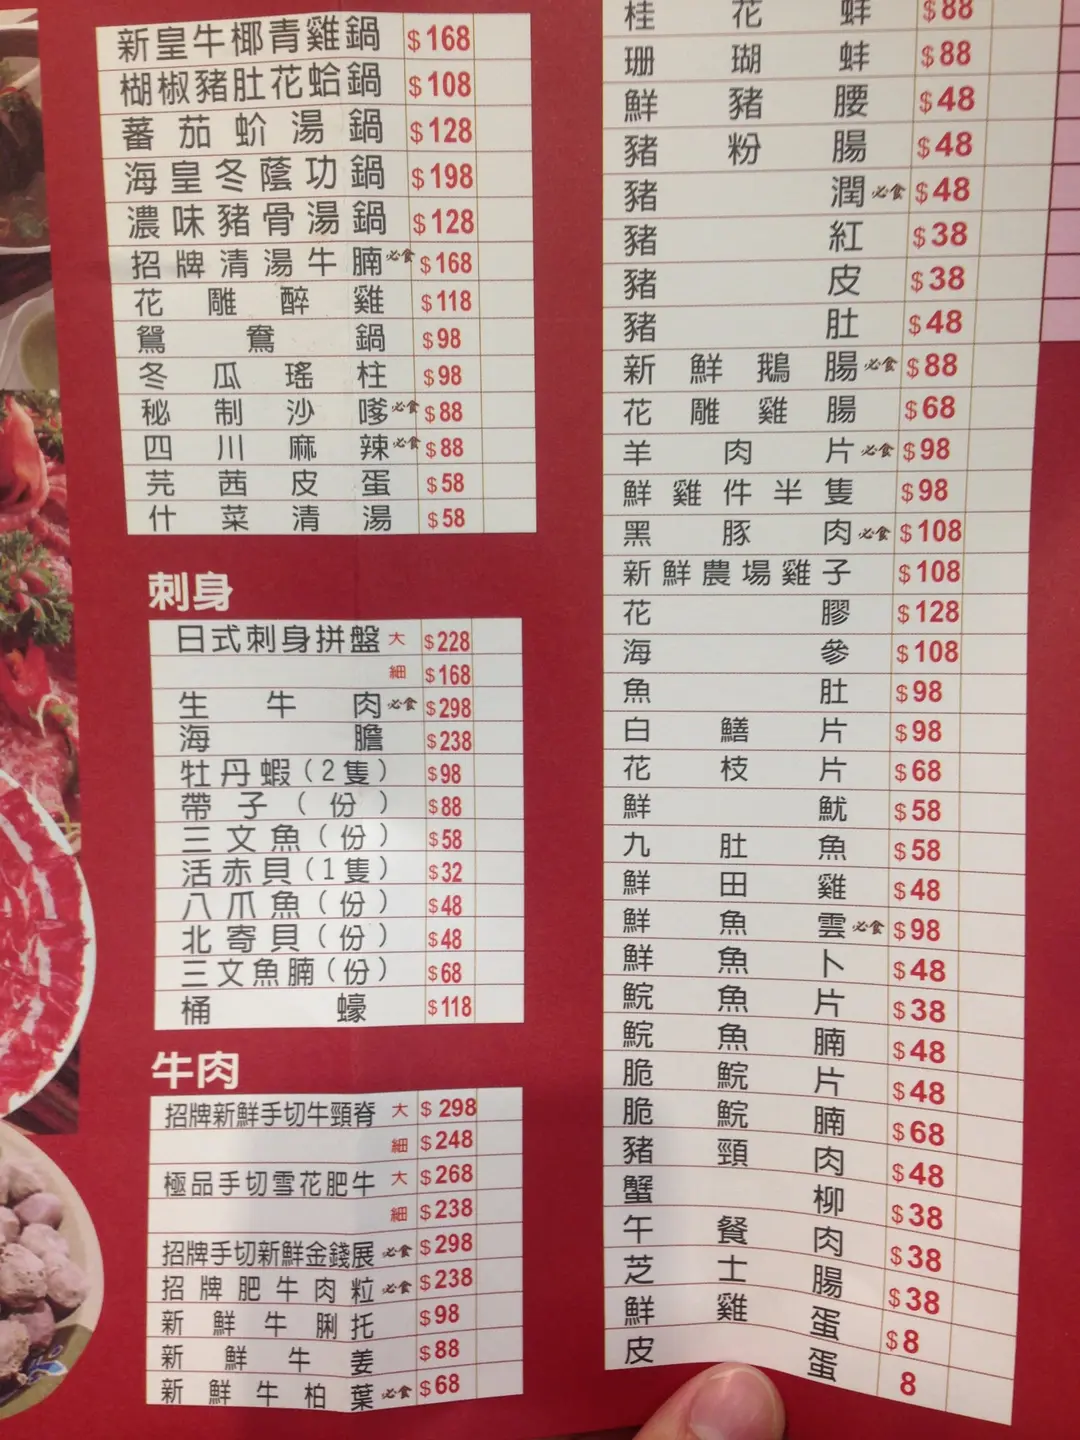 新皇牛椰青雞鍋 $168
椒椒豬肚花蛤鍋 $108
蕃茄蚧湯鍋 $128
海皇冬蔭功鍋 $198
濃味豬骨湯鍋 $128
招牌清湯牛腩 必食 $168
花雕醉雞 $118
鴛鴦鍋 $98
冬瓜瑤柱 $98
秘制沙嗲 必食 $88
四川麻辣 必食 $88
芫茜皮蛋 $58
什菜清湯 $58
刺身
日式刺身拼盤 大 $228
細 $168
生牛肉 必食 $298
海膽 $238
牡丹蝦(2隻) $98
帶子(份) $88
三文魚(份) $58
活赤貝(1隻) $32
八爪魚(份) $48
北寄貝(份) $48
三文魚腩(份) $68
桶蠔 $118
牛肉
招牌新鮮手切牛頸脊 大 $298
細 $248
極品手切雪花肥牛 大 $268
細 $238
招牌手切新鮮金錢展 必食 $298
招牌肥牛肉粒 必食 $238
新鮮牛脷托 $98
新鮮牛姜 $88
新鮮牛柏葉 必食 $68
桂花蚌 $88
珊瑚蚌 $88
鮮豬腰 $48
豬粉腸 $48
豬潤 必食 $48
豬紅 $38
豬皮 $38
豬肚 $48
新鮮鵝腸 必食 $88
花雕雞腸 $68
羊肉片 必食 $98
鮮雞件半隻 $98
黑豚肉 必食 $108
新鮮農場雞子 $108
花膠 $128
海參 $108
魚肚 $98
白鱔片 $98
花枝片 $68
鮮魷 $58
九肚魚 $58
鮮田雞 $48
鮮魚雲 必食 $98
鮮魚卜 $48
鯇魚片 $38
鯇魚腩 $48
脆鯇片 $48
脆鯇腩 $68
豬頸肉 $48
蟹柳 $38
午餐肉 $38
芝士腸 $38
鮮雞蛋 $8
皮蛋 8